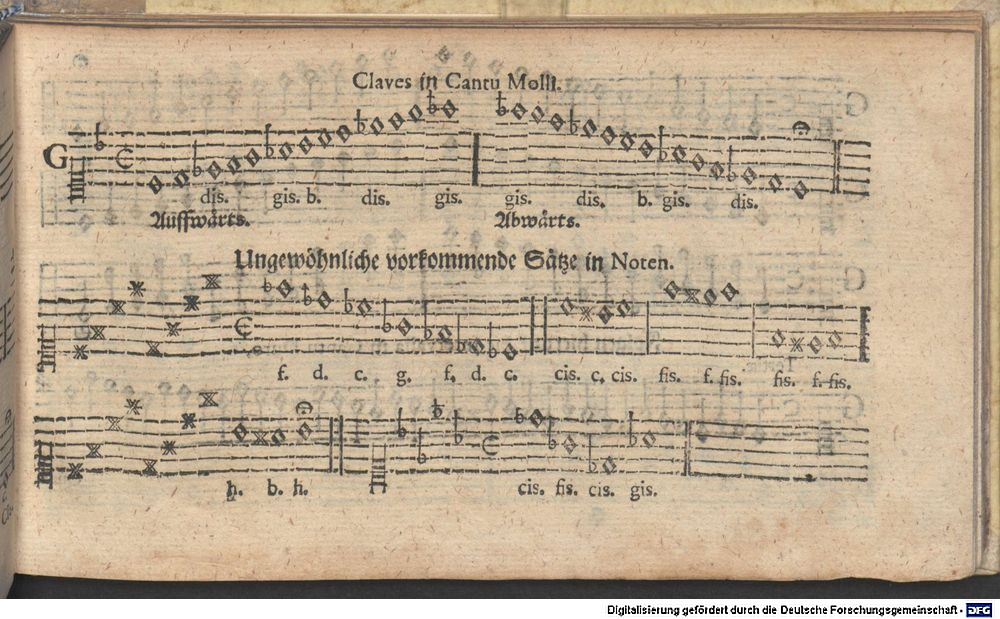 Claves in Cantu Molli.
G
dis. gis. b. dis. gis. gis. dis. b. gis. dis.
Auffwärts. Abwärts.
Ungewöhnliche vorkommende Sätze in Noten.
f. d. c. g. f. d. c. cis. c. cis. fis. f. fis. fis. f. fis.
h. b. h. cis. fis. cis. gis.
Digitalisierung gefördert durch die Deutsche Forschungsgemeinschaft - DFG